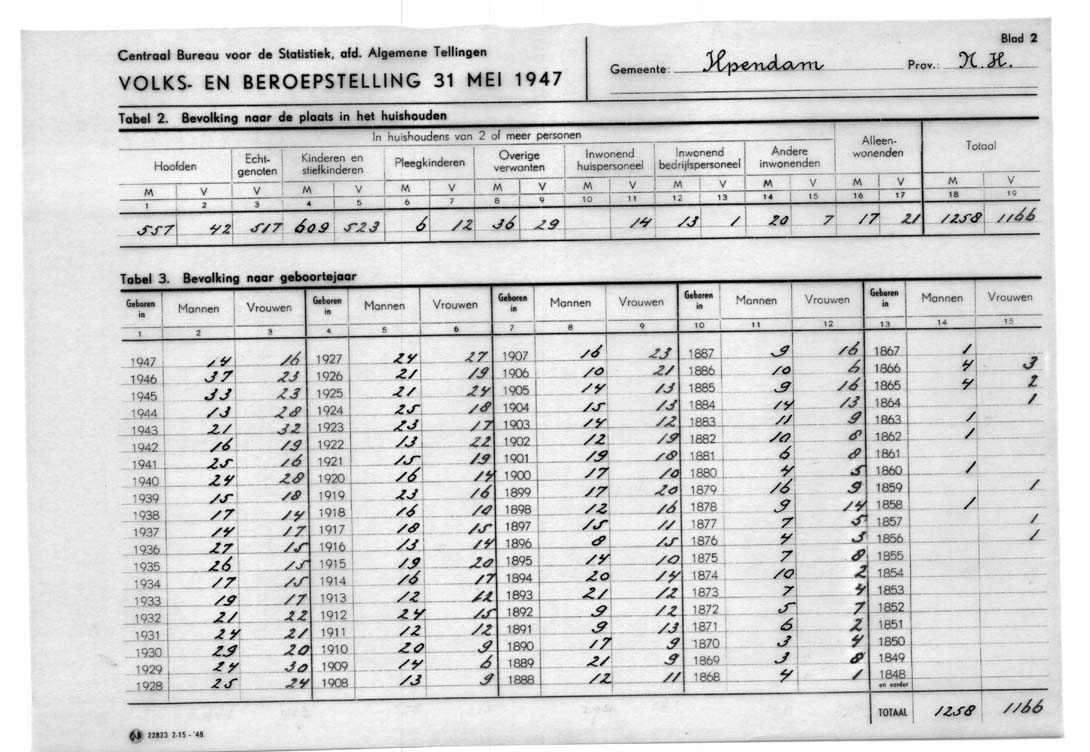 Blad 2
Centraal Bureau voor de Statistiek, afd. Algemene Tellingen
VOLKS- EN BEROEPSTELLING 31 MEI 1947
Gemeente: Ilpendam Prov.: N.H.
Tabel 2. Bevolking naar de plaats in het huishouden
In huishoudens van 2 of meer personen Alleen-wonenden Totaal
Hoofden Echt-genoten Kinderen en stiefkinderen Pleegkinderen Overige verwanten Inwonend huispersoneel Inwonend bedrijfspersoneel Andere inwonenden
M V V M V M V M V M V M V M V M V M V
1 2 3 4 5 6 7 8 9 10 11 12 13 14 15 16 17 18 19
557 42 517 609 523 6 12 36 29 14 13 1 20 7 17 21 1258 1166
Tabel 3. Bevolking naar geboortejaar
Geboren in Mannen Vrouwen Geboren in Mannen Vrouwen Geboren in Mannen Vrouwen Geboren in Mannen Vrouwen Geboren in Mannen Vrouwen
1 2 3 4 5 6 7 8 9 10 11 12 13 14 15
1947 14 16 1927 24 27 1907 16 23 1887 9 16 1867 1
1946 37 23 1926 21 19 1906 10 21 1886 10 6 1866 4 3
1945 33 23 1925 21 24 1905 14 13 1885 9 16 1865 4 2
1944 13 28 1924 25 18 1904 15 13 1884 14 13 1864 1
1943 21 32 1923 23 17 1903 14 12 1883 11 9 1863 1
1942 16 19 1922 13 22 1902 12 19 1882 10 8 1862 1
1941 25 16 1921 15 19 1901 19 18 1881 6 8 1861
1940 24 28 1920 16 14 1900 17 10 1880 4 5 1860 1
1939 15 18 1919 23 16 1899 17 20 1879 16 9 1859 1
1938 17 14 1918 16 10 1898 12 16 1878 9 14 1858 1
1937 14 17 1917 18 15 1897 15 11 1877 7 5 1857 1
1936 27 15 1916 13 14 1896 8 15 1876 4 3 1856 1
1935 26 15 1915 19 20 1895 14 10 1875 7 8 1855
1934 17 15 1914 16 17 1894 20 14 1874 10 2 1854
1933 19 17 1913 12 12 1893 21 12 1873 7 4 1853
1932 21 22 1912 24 15 1892 9 12 1872 5 7 1852
1931 24 21 1911 12 12 1891 9 13 1871 6 2 1851
1930 29 20 1910 20 9 1890 17 9 1870 3 4 1850
1929 24 30 1909 14 6 1889 21 9 1869 3 8 1849
1928 25 24 1908 13 9 1888 12 11 1868 4 1 1848 en eerder
TOTAAL 1258 1166
22823 2-15 - '48